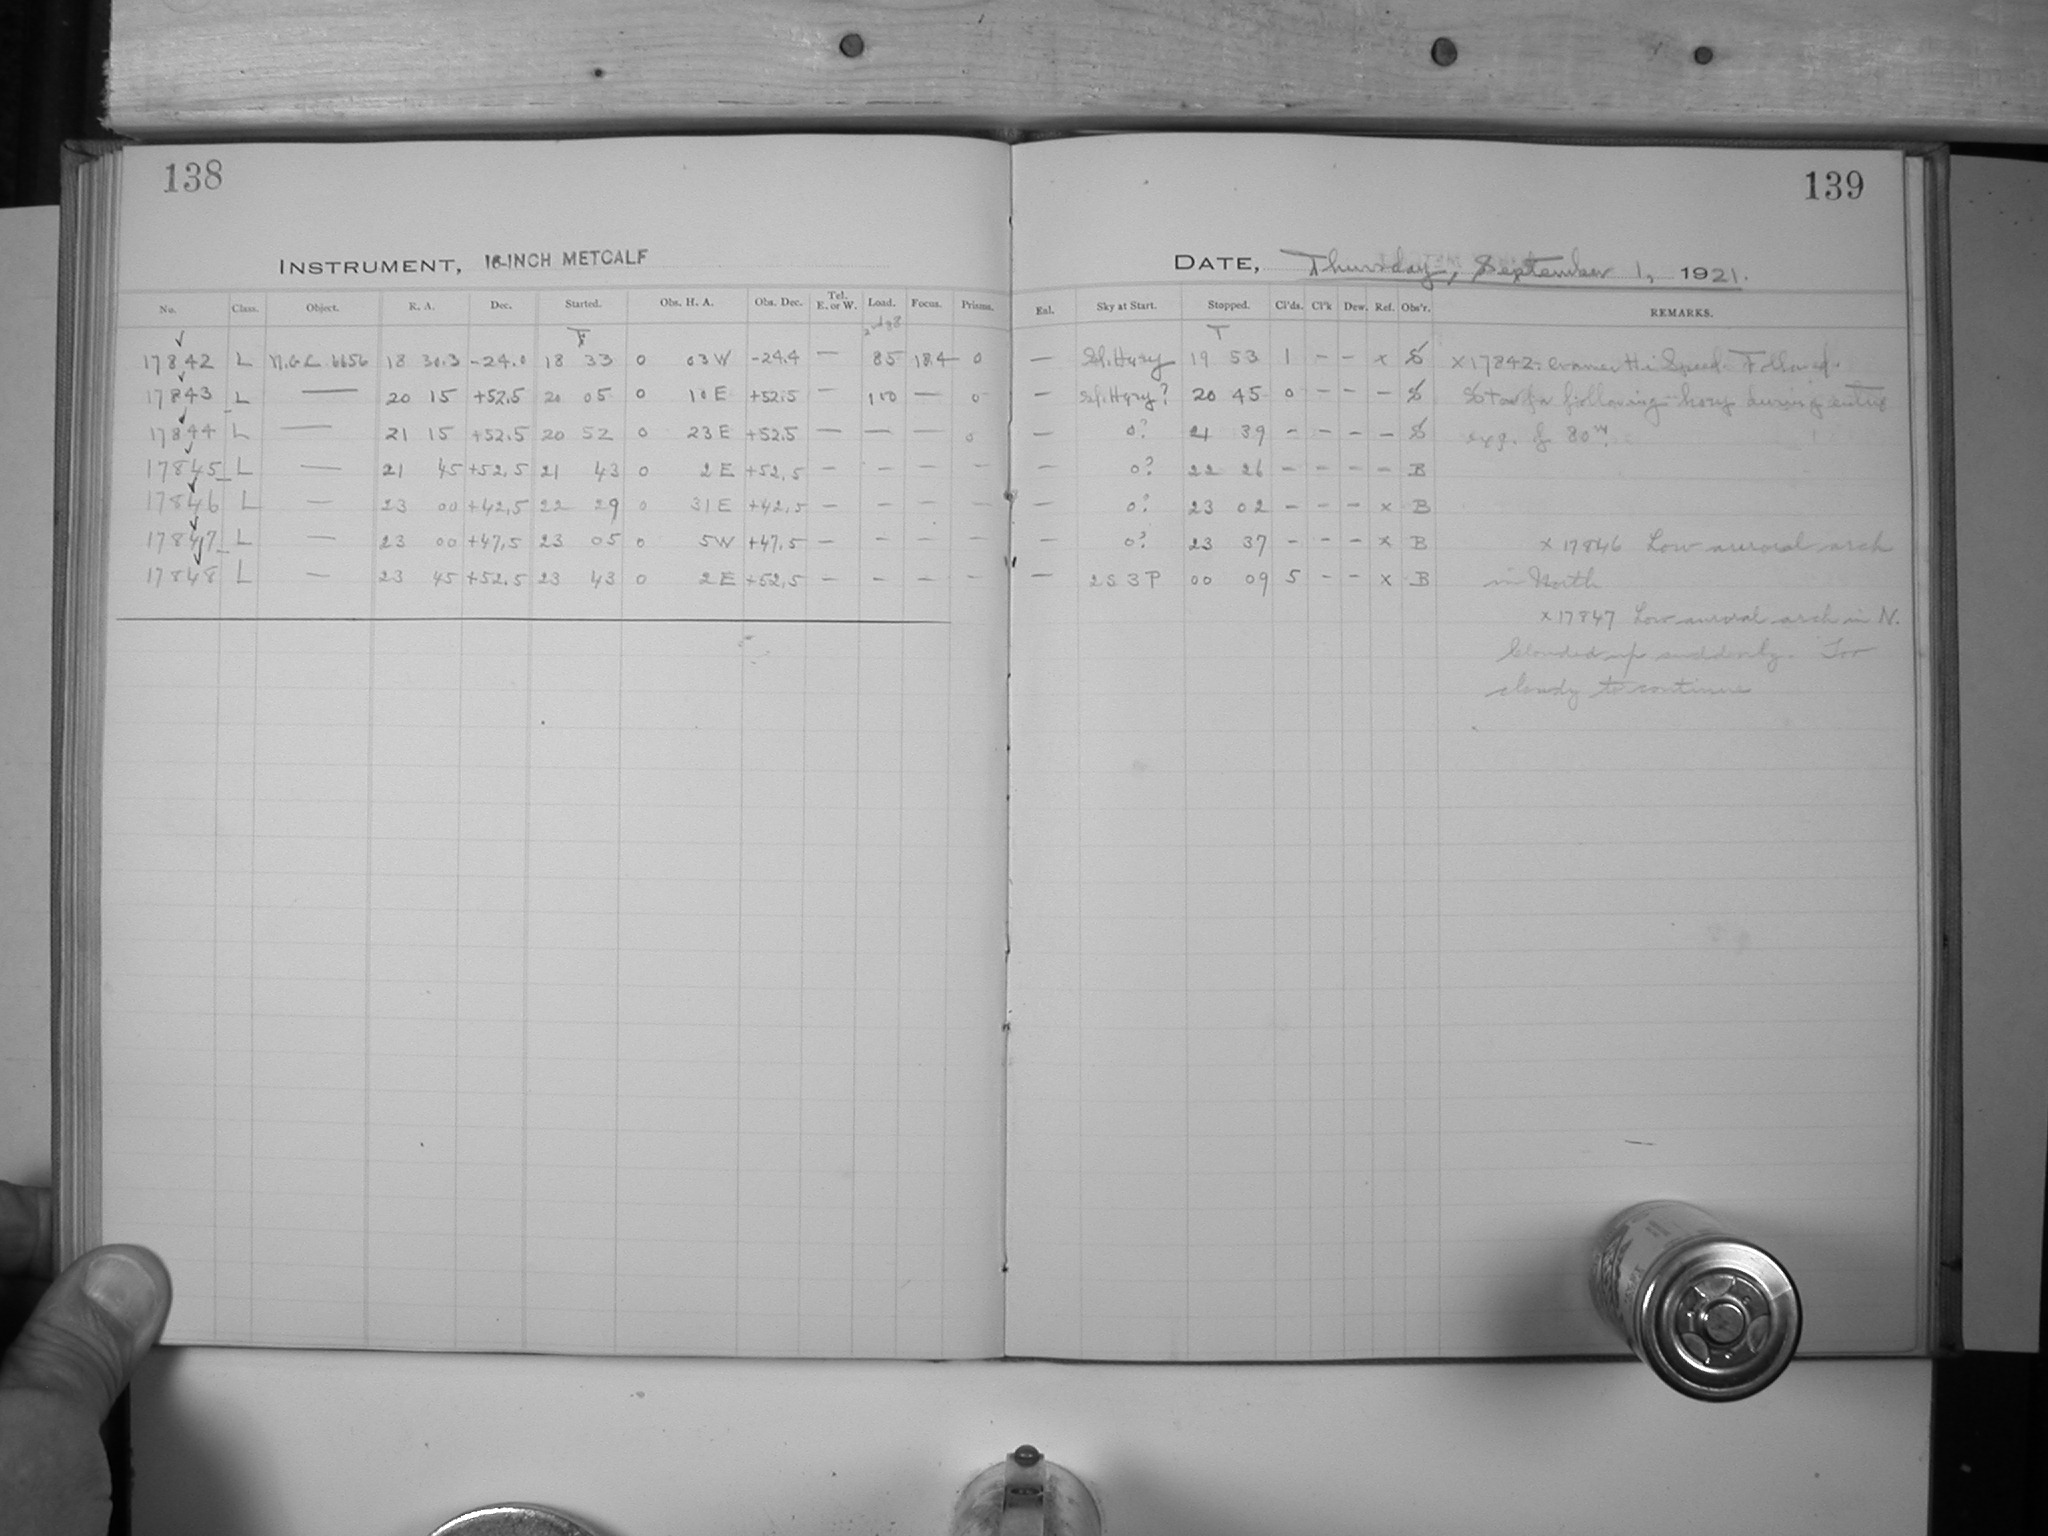 138
INSTRUMENT, 16-INCH METCALF
No. Class. Object. R. A. Dec. Started. Obs. H. A. Obs. Dec. Tel. E. or W. Load. Focus. Prisms.
17842 L N.G.C. 6656 18 30.3 -24.0 18 33 0 03 W -24.4 — 85 18.4 0
17843 L — 20 15 +52.5 20 05 0 10 E +52.5 — 100 — 0
17844 L — 21 15 +52.5 20 52 0 23 E +52.5 — — — 0
17845 L — 21 45 +52.5 21 43 0 2 E +52.5 — — — —
17846 L — 23 00 +42.5 22 29 0 31 E +42.5 — — — —
17847 L — 23 00 +47.5 23 05 0 5 W +47.5 — — — —
17848 L — 23 45 +52.5 23 43 0 2 E +52.5 — — — —
139
DATE, Thursday, September 1, 1921.
Eal. Sky at Start. Stopped. Cl'ds. Cl'k Dew. Ref. Obs'r. REMARKS.
T
— Sl. Hazy 19 53 1 – – x S x 17842 = Cramer Hi Speed. Followed.
— Sl. Hazy? 20 45 0 – – – S Star for following hazy during entire
— 0? 21 39 – – – – S exp. of 80m.
— 0? 22 26 – – – – B
— 0? 23 02 – – – x B
— 0? 23 37 – – – x B x 17846 Low auroral arch
— 2S 3P 00 09 5 – – x B in North
x 17847 Low auroral arch in N.
Clouded up suddenly. Too
cloudy to continue